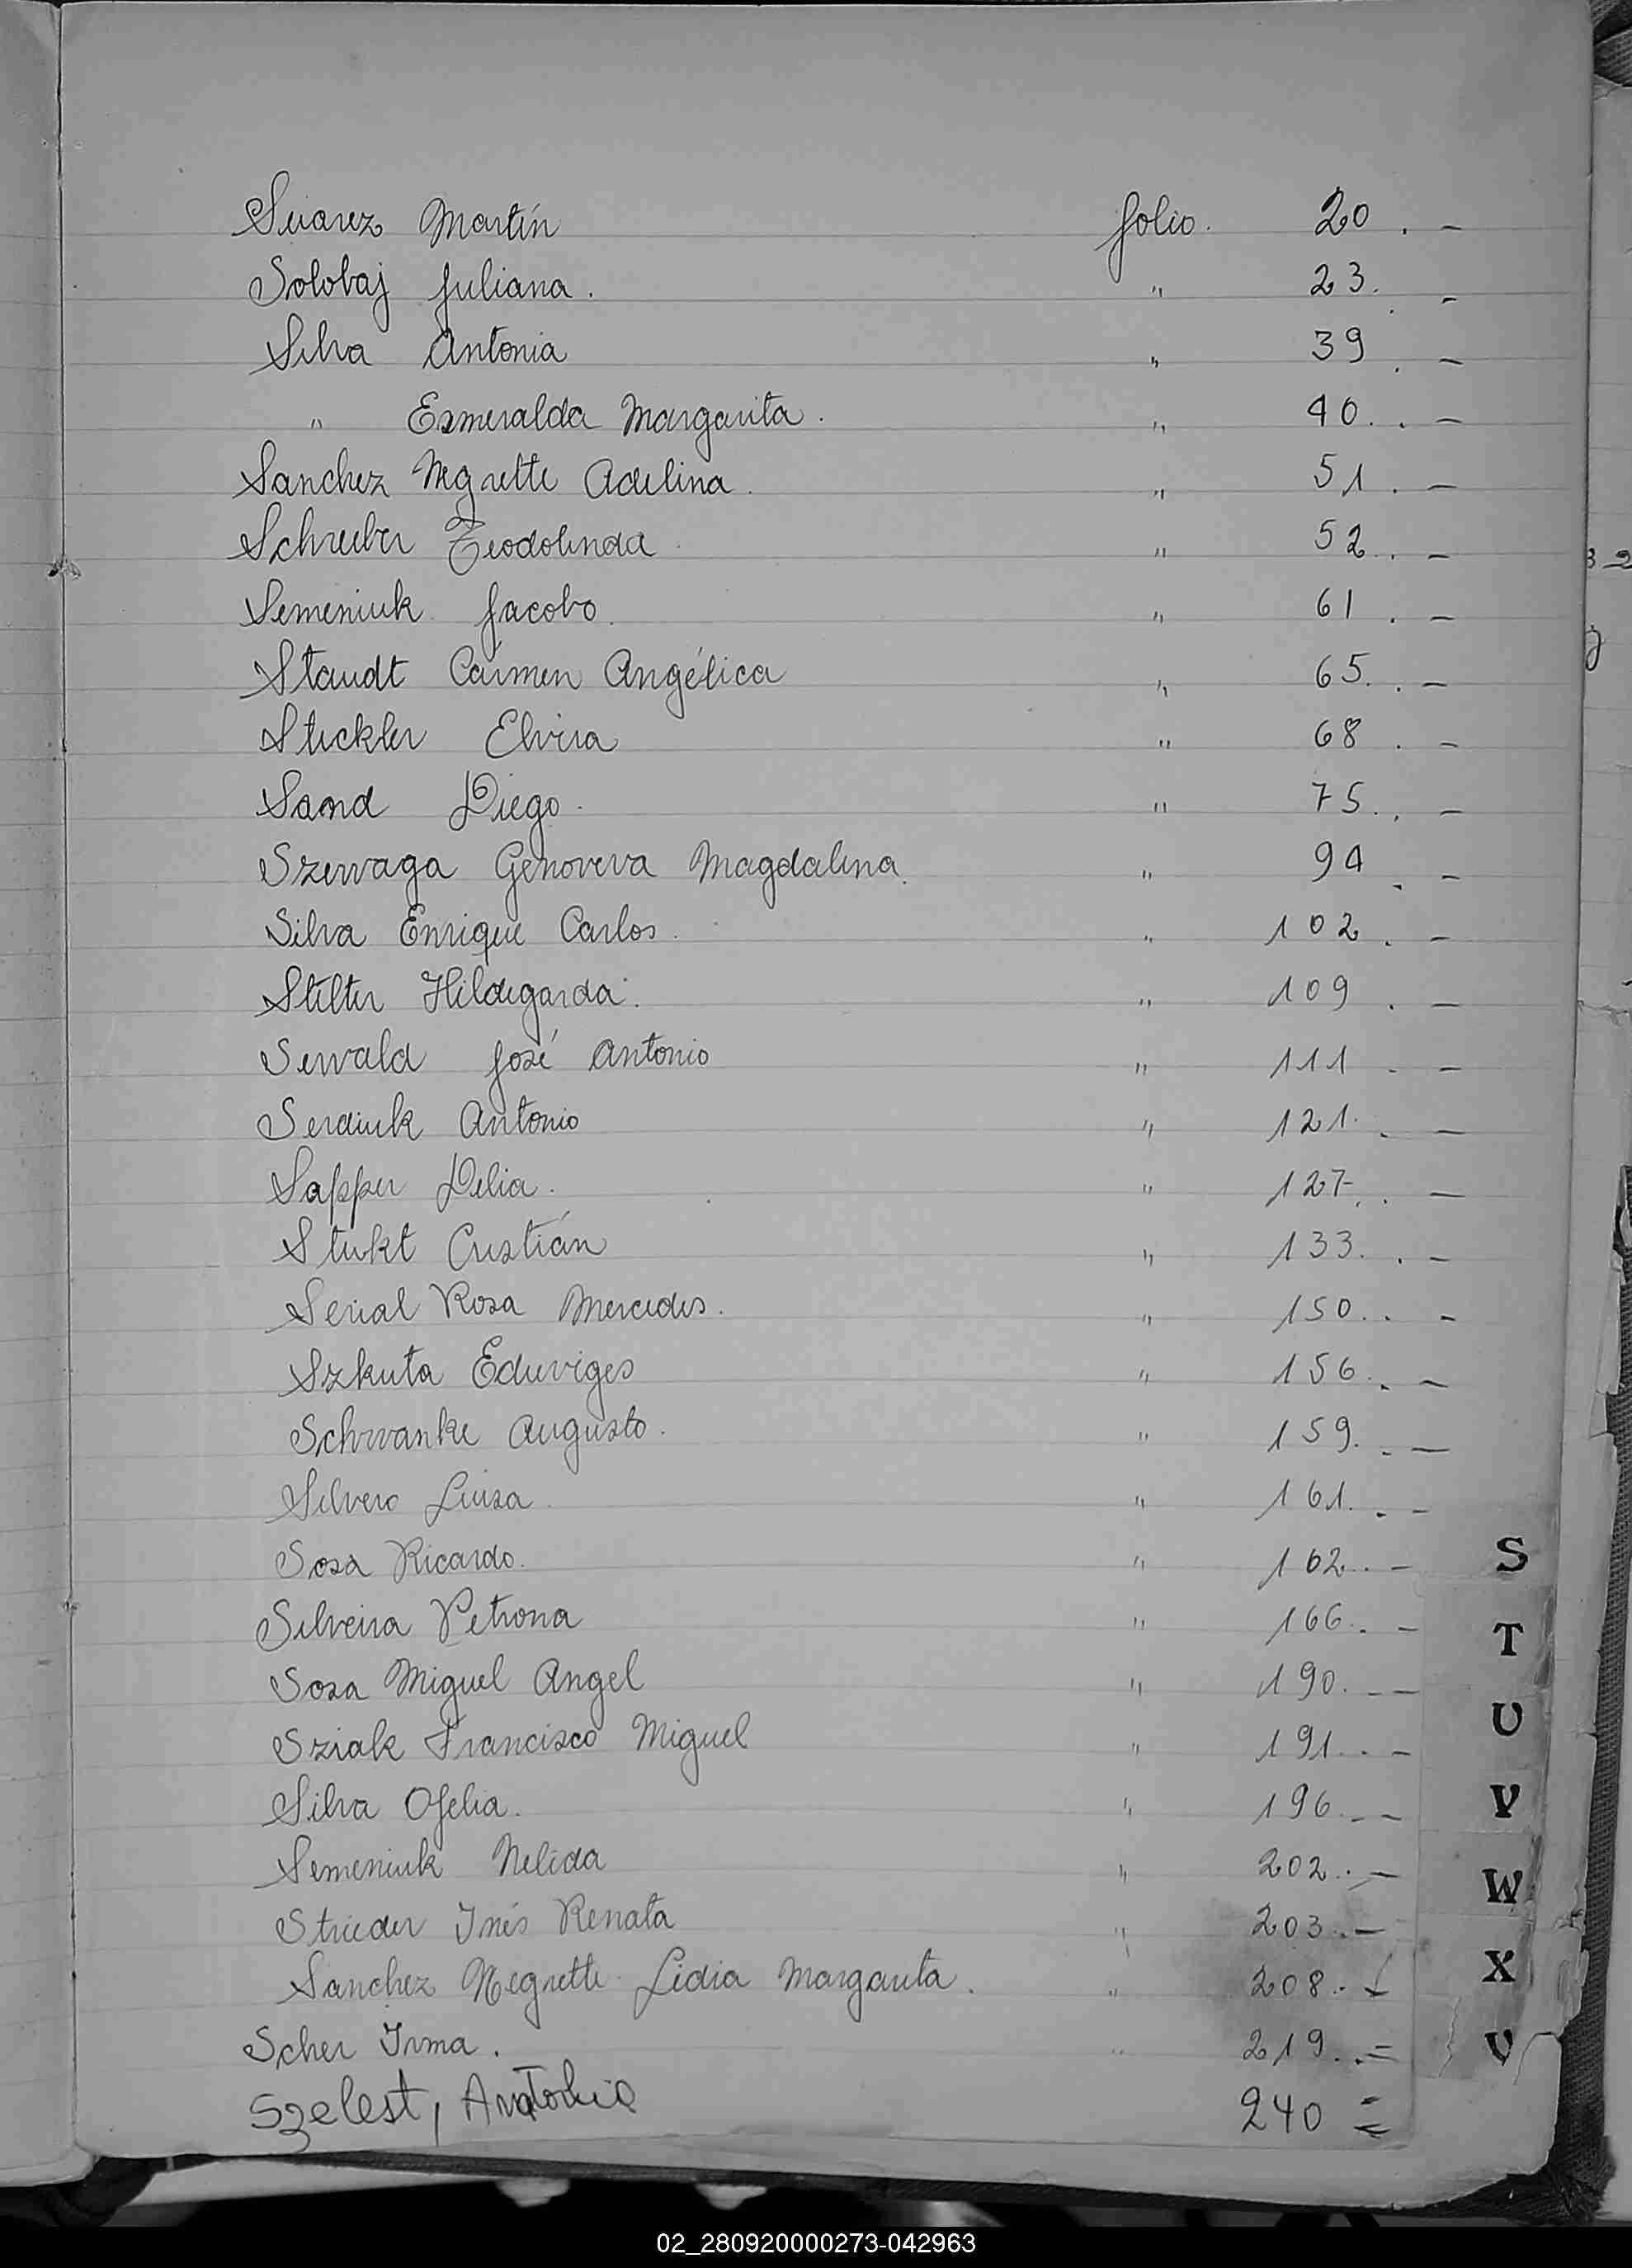 Suarez Martín folio. 20 . –
Solobaj Juliana. " 23. –
Silva Antonia " 39 . –
" Esmeralda Margarita. " 40. . –
Sanchez Negrette Adelina. " 51 . –
Schreiber Teodolinda " 52 . –
Semeniuk Jacobo. " 61 . –
Staudt Carmen Angélica " 65. . –
Steckler Elvira " 68 . –
Sand Diego. " 75. . –
Szewaga Genoveva Magdalena. " 94 . –
Silva Enrique Carlos. " 102 . –
Stilter Hildegarda. " 109 . –
Sewald José Antonio " 111 . –
Serdiuk Antonio " 121. . –
Sapper Delia. " 127. . –
Stukt Cristián " 133. . –
Serial Rosa Mercedes. " 150. . –
Szkuta Eduviges " 156. . –
Schwanke Augusto. " 159. . –
Silvero Luisa. " 161. . –
Sosa Ricardo. " 162. . –
Silveira Petrona " 166. . –
Sosa Miguel Angel " 190. – –
Sziak Francisco Miguel " 191. . –
Silva Ofelia. " 196. – –
Semeniuk Nelida " 202. . –
Strieder Inés Renata " 203. . –
Sanchez Negrette Lidia Margarita. " 208. . –
Scher Irma. " 219. . =
Szelest, 240 =
S
T
U
V
W
X
02_280920000273-042963